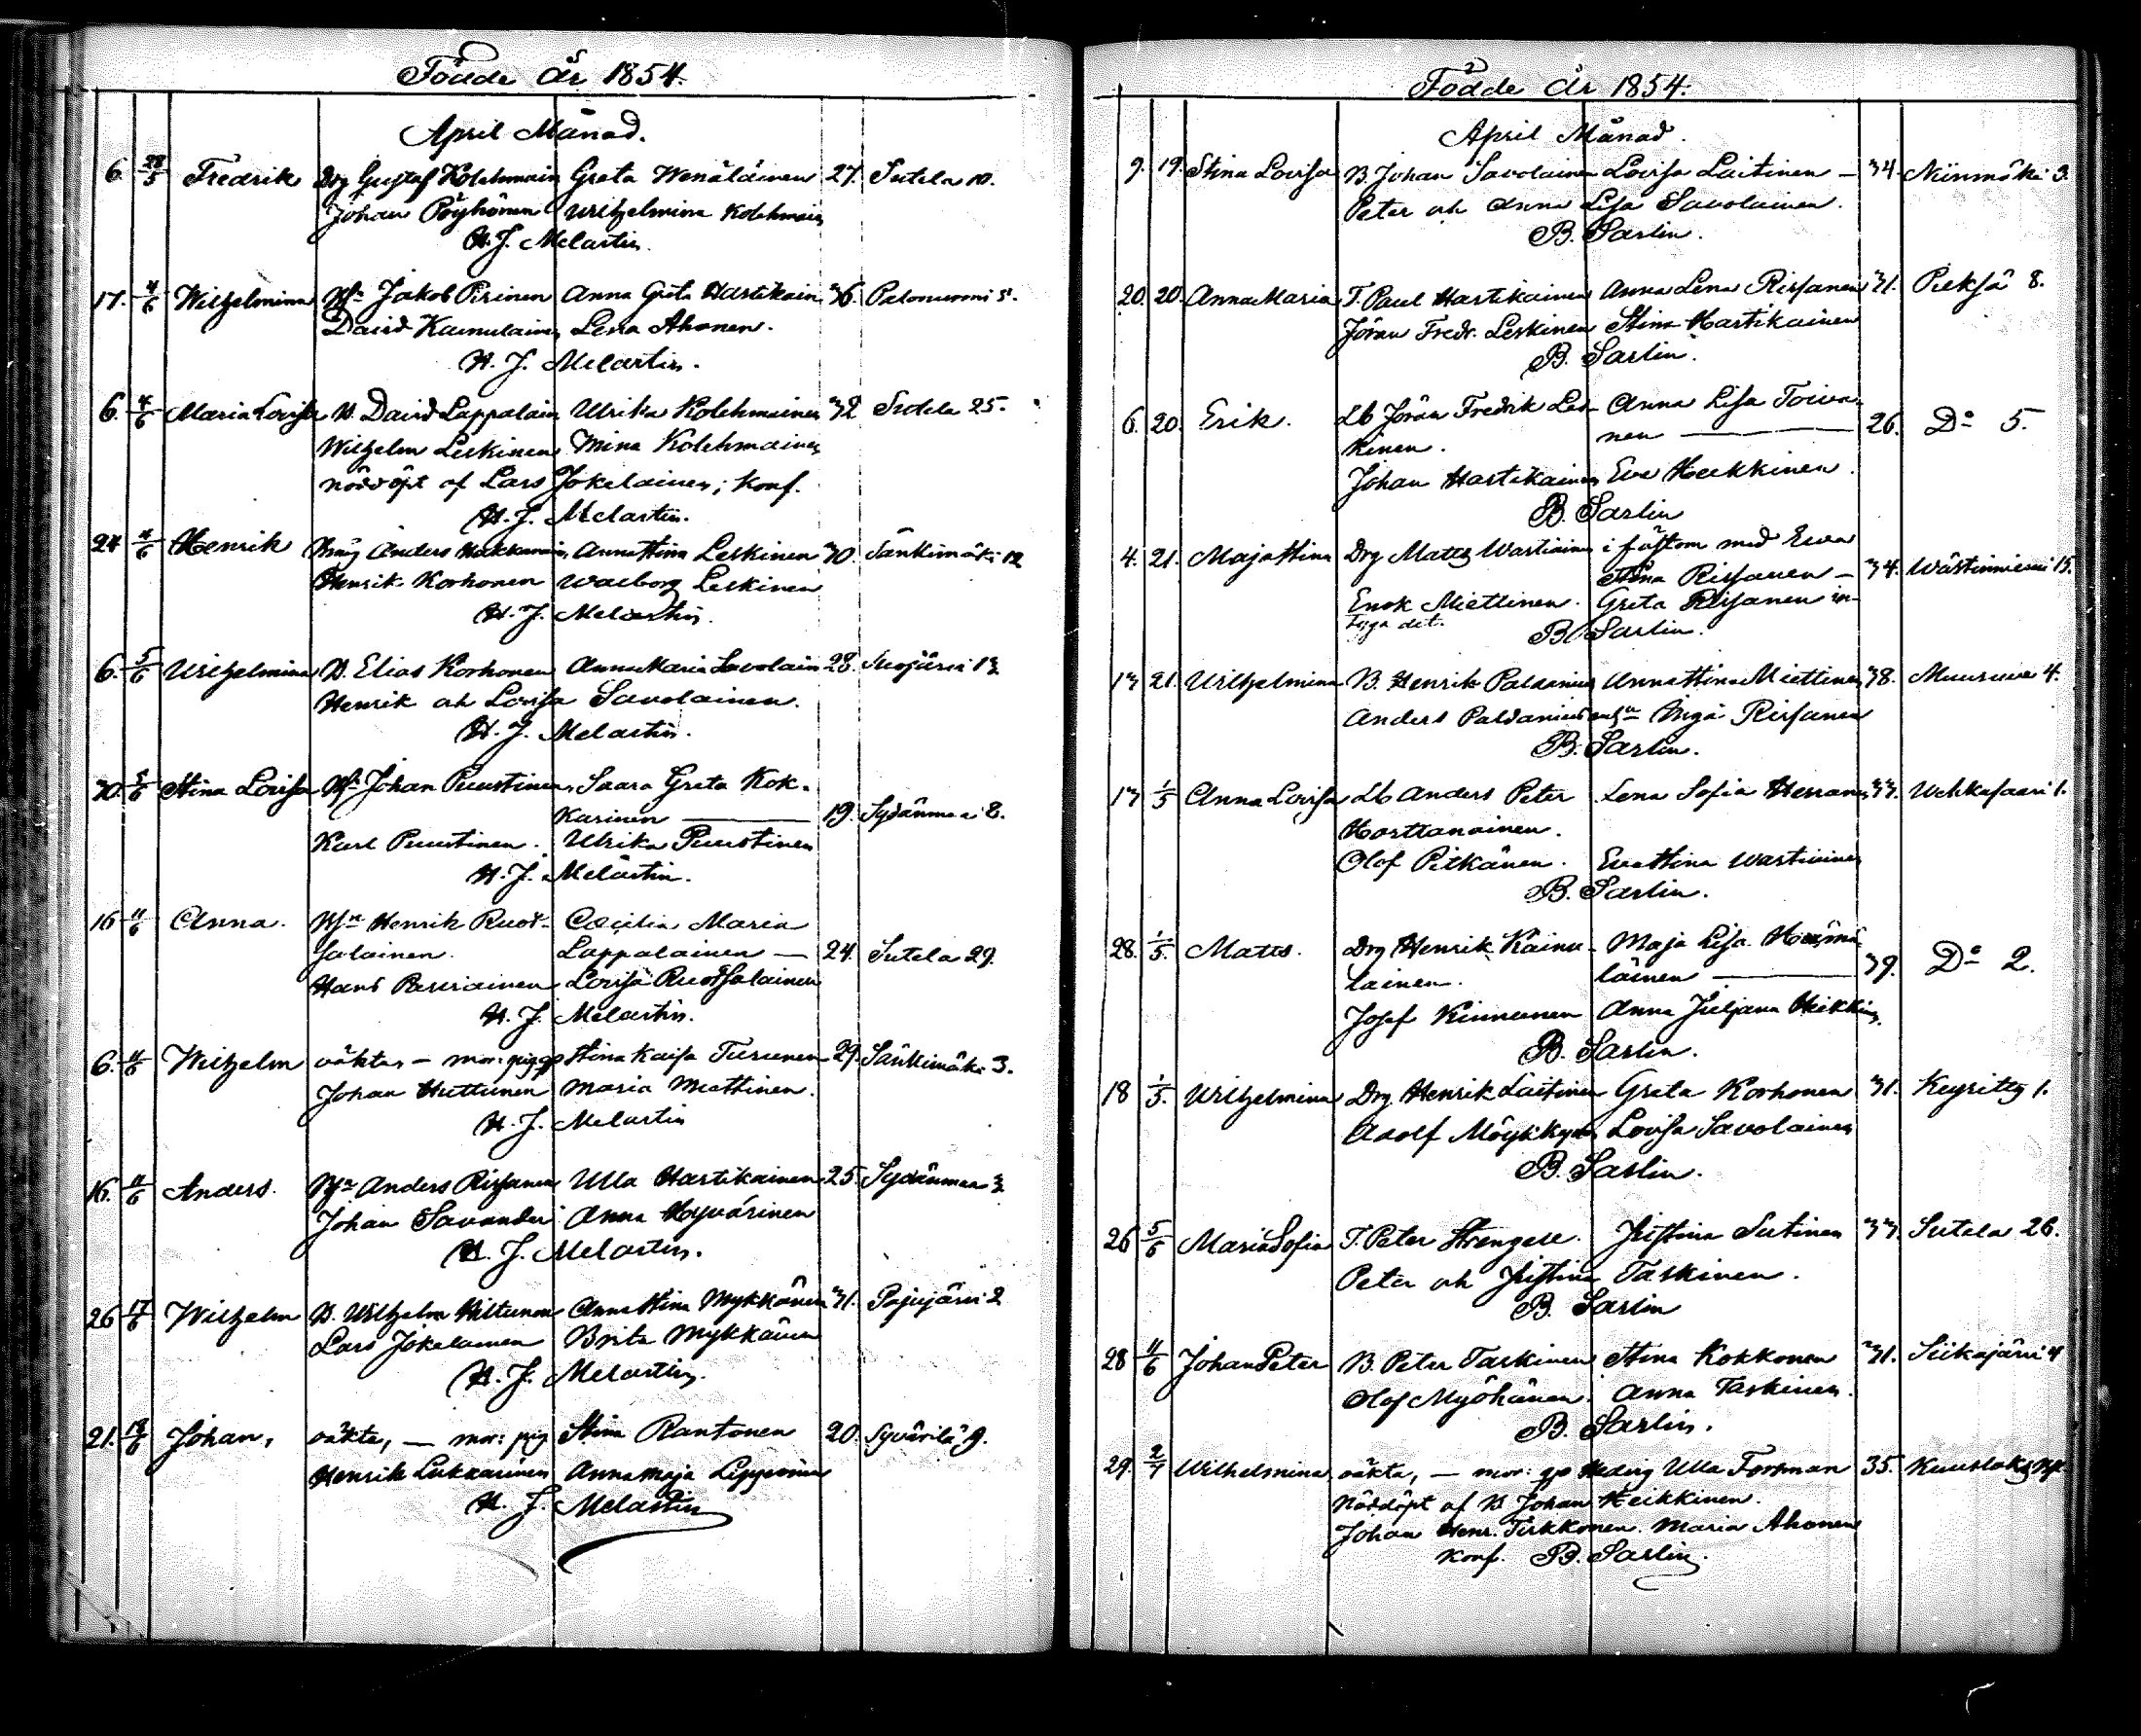 Födde År 1854.
April Månad.
6. 28/5 Fredrik Drg Gustaf Kolehmain Greta Wenäläinen 27. Sutela 10.
Johan Pöyhönen Wilhelmina Kolehmain
H. J. Melartin.
17. 4/6 Wilhelmina Jakob Pirinen Anna Greta Hartikain 36. Palonurmi 5.
David Kumulainen Lena Ahonen.
H. J. Melartin.
6. 4/6 Maria Lovisa B. David Lappalain Ulrika Kolehmainen 32 Sutela 25.
Wilhelm Leskinen Mina Kolehmainen
nöddöpt af Lars Jokelainen; Konf.
H. J. Melartin.
24 4/6 Henrik Anders Anna Stina Leskinen 30. Sänkimäki 12
Henrik Korhonen Walborg Leskinen
H. J. Melartin.
6. 5/6 Wilhelmina B. Elias Korhonen Anna Maria Savolain 28. 13
Henrik och Lovisa Savolainen.
H. J. Melartin.
30. 5/6 Stina Lovisa Johan Puustinen, Saara Greta Kok-
karinen — 19. Sydänmaa 8.
Karl Puustinen. Ulrika Puustinen
H. J. Melartin.
16 11/6 Anna. Henrik Ruot- Cecilia Maria
salainen. Lappalainen — 24. Sutela 29.
Hans Lovisa Ruotsalainen
H. J. Melartin.
6. 11/6 Wilhelm oäkta, — mor: Stina Kaisa Turunen 29. Sänkimäki 3.
Johan Huttunen Maria Miettinen.
H. J. Melartin
16. 11/6 Anders. Anders Rissanen Ulla Hartikainen 25. Sydänmaa 3
Johan Savander Anna Hyvärinen
H. J. Melartin.
26 17/6 Wilhelm B. Wilhelm Hiltunen Anna Stina Mykkänen 31. Pajujärvi 2
Lars Jokelainen Brita Mykkänen
H. J. Melartin.
21. 18/6 Johan, oäkta, — mor: pig Stina Rantonen 20. Syvärilä 9.
Henrik Liukkarinen Anna Maja
H. J. Melartin
Födde År 1854.
April Månad.
9. 19. Stina Lovisa B. Johan Savolainen Lovisa Laitinen — 34. Niinimäki 3.
Peter och Anna Lisa Savolainen.
B. Sarlin.
20. 20. Anna Maria T. Paul Hartikainen Anna Lena Rissanen 31. Pieksä 8.
Jöran Fredr. Leskinen Stina Hartikainen
B. Sarlin.
6. 20. Erik. Lb Jöran Fredrik Les- Anna Lisa Toiva-
kinen. nen — 26. Do 5.
Johan Hartikainen Eva Heikkinen.
B. Sarlin
4. 21. Maja Stina Drg Matts Wartiainen i fästom med Ewa
Stina Rissanen — 34. Västinniemi 15.
Enok Miettinen. Greta Rissanen in-
tyga det.
B. Sarlin.
17 21. Wilhelmina B. Henrik Paldanius Anna Stina Miettinen 38. Muuruve 4.
Anders Paldanius Inga Rissanen
B. Sarlin.
17 1/5 Anna Lovisa Lb Anders Peter Lena Sofia 33. Vehkasaari 1.
Harttanainen.
Olof Pitkänen. Eva Stina Wartiainen
B. Sarlin.
28. 1/5. Matts. Drg Henrik Kainu- Maja Lisa
lainen. läinen — 39. Do 2.
Josef Kinnunen Anna Juljana Heikkinen.
B. Sarlin.
18 1/5. Wilhelmina Drg. Henrik Laitinen Greta Korhonen 31. Keyrity 1.
Adolf Möykkynen Lovisa Savolainen
B. Sarlin.
26 5/6 Maria Sofia T. Peter Strengell. Justina Sutinen 33. Sutela 26.
Peter och Justina Taskinen.
B. Sarlin
28 11/6 Johan Peter B. Peter Taskinen Stina Kokkonen 31. Siikajärvi 4
Olof Myöhänen. Anna Taskinen.
B. Sarlin.
29. 2/7 Wilhelmina oäkta, — mor: Hedvig Ulla Forsman 35. Kuuslaks
Nöddöpt af B Johan Heikkinen.
Johan Henr. Tirkkonen. Maria Ahonen
Konf. B. Sarlin.